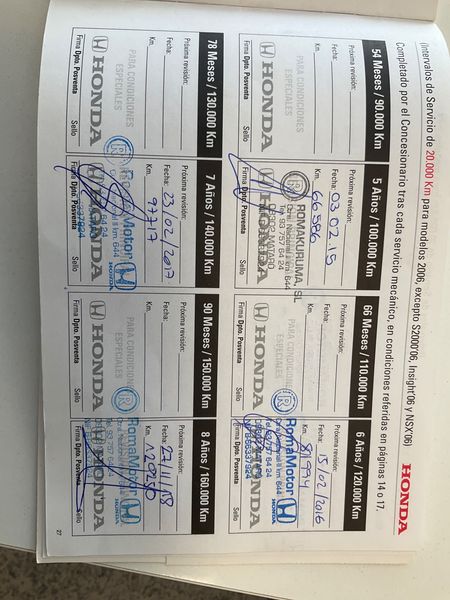 (Intervalos de Servicio de 20.000 Km para modelos 2006, excepto S2000'06, Insight'06 y NSX'06)
Completado por el Concesionario tras cada servicio mecánico, en condiciones referidas en páginas 14 o 17.
HONDA
54 Meses / 90.000 Km
Próxima revisión:
Fecha:
Km.
PARA CONDICIONES
ESPECIALES
HONDA
Firma Dpto. Posventa Sello
5 Años / 100.000 Km
Próxima revisión:
Fecha: 03.02.15
Km. 66596
ROMAKURUMA, SL
HONDA
Firma Dpto. Posventa
66 Meses / 110.000 Km
Próxima revisión:
Fecha:
Km.
PARA CONDICIONES
ESPECIALES
HONDA
Firma Dpto. Posventa Sello
6 Años / 120.000 Km
Próxima revisión:
Fecha: 15/02/2016
Km. 81994
RomaMotor
HONDA
Firma Dpto. Posventa Sello
78 Meses / 130.000 Km
Próxima revisión:
Fecha:
Km.
PARA CONDICIONES
ESPECIALES
HONDA
Firma Dpto. Posventa Sello
7 Años / 140.000 Km
Próxima revisión:
Fecha: 23/02/2017
Km.
RomaMotor
HONDA
Firma Dpto. Posventa Sello
90 Meses / 150.000 Km
Próxima revisión:
Fecha:
Km.
PARA CONDICIONES
ESPECIALES
HONDA
Firma Dpto. Posventa Sello
8 Años / 160.000 Km
Próxima revisión:
Fecha:
Km.
RomaMotor
HONDA
Firma Dpto. Posventa Sello
27